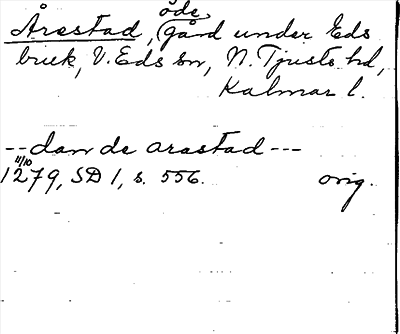 Årestad, (öde)gård under Eds
bruk, V. Eds sn, N. Tjusts hd,
Kalmar l.
--dan de arastad---
11/10
1279, SD 1, s. 556. orig.